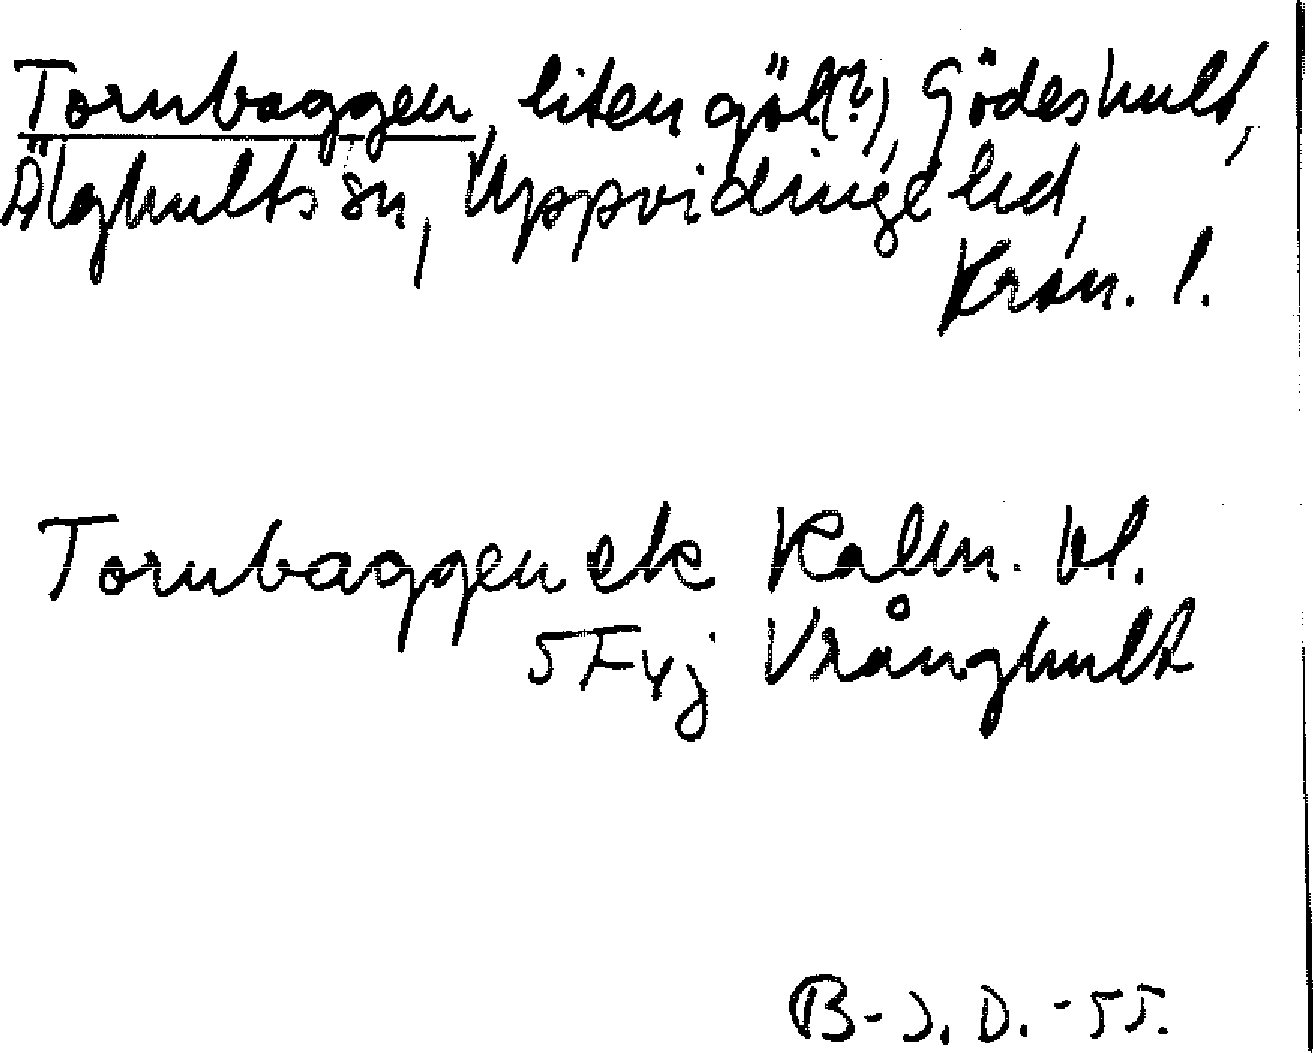 Tornbaggen, liten göl(?), Gödeshult,
Älghults sn, Uppvidinge hd,
Kron. l.
Tornbaggen ek Kalm. bl.
5F4j Vrånghult
B-J. D. -55.